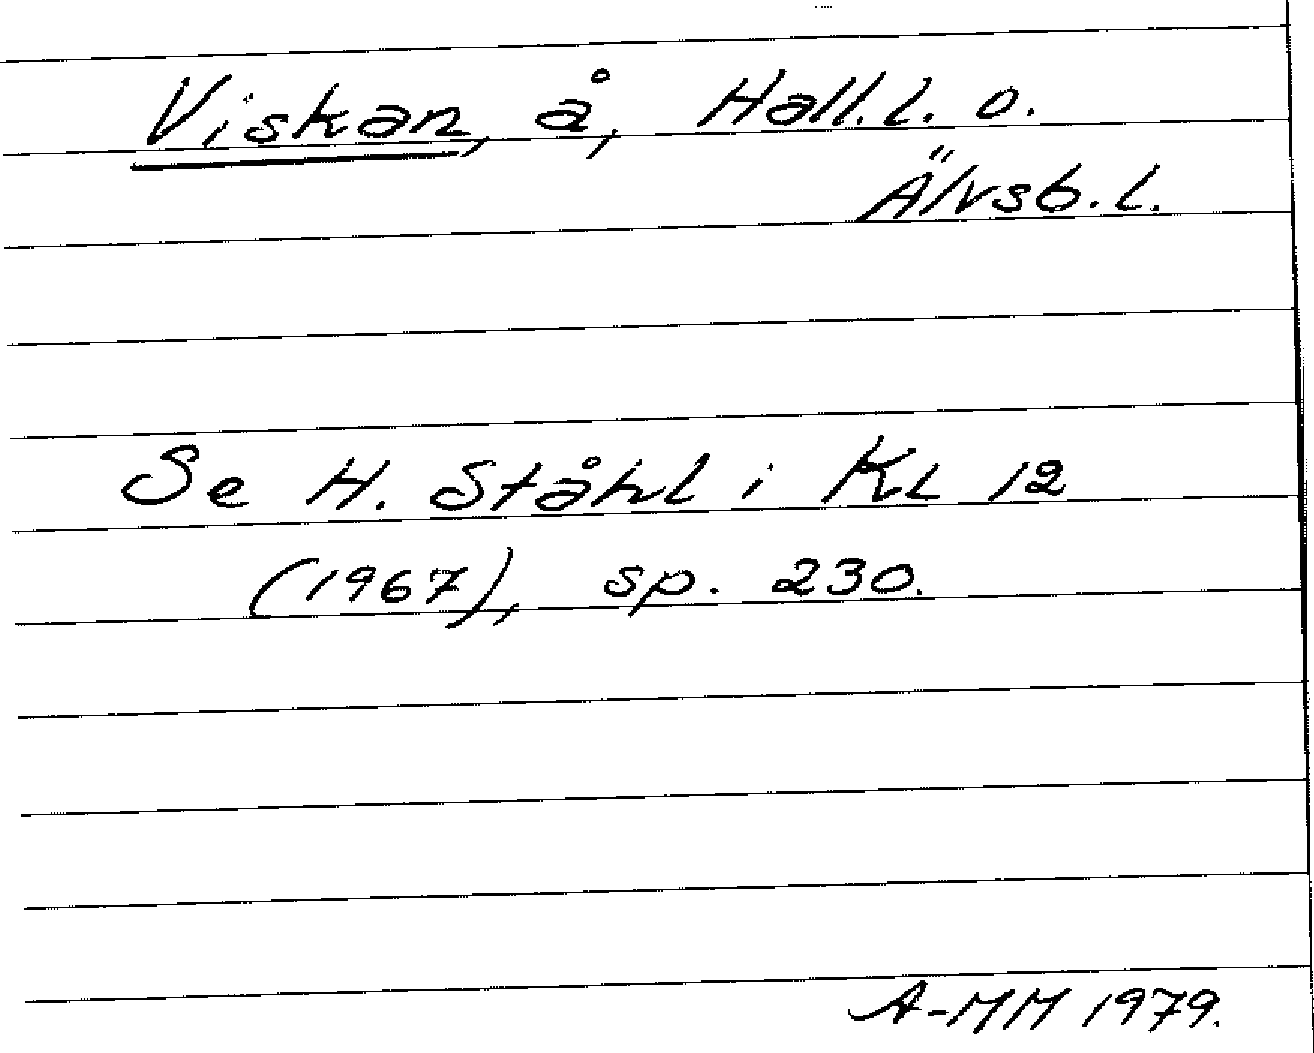 Viskan, å, Hall.l. o.
Älvsb.l.
Se H. Ståhl i KL 12
(1967), sp. 230.
A-MM 1979.